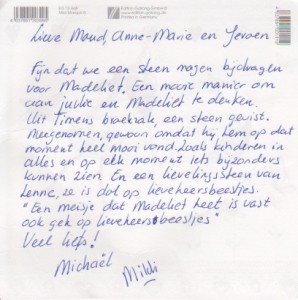 Lieve Maud, Anne-Marie en Jeroen
Fijn dat we een steen mogen bijdragen
voor Madelief. Een mooie manier om
aan jullie en Madelief te denken.
Uit Timens broekzak, een steen gevist.
Meegenomen, gewoon omdat hij hem op dat
moment heel mooi vond. Zoals kinderen in
alles en op elk moment iets bijzonders
kunnen zien. En een lievelingssteen van
Lenne, ze is dol op lieveheersbeestjes.
"Een meisje dat Madelief heet is vast
ook gek op lieveheersbeestjes"
Veel liefs!
Michaël